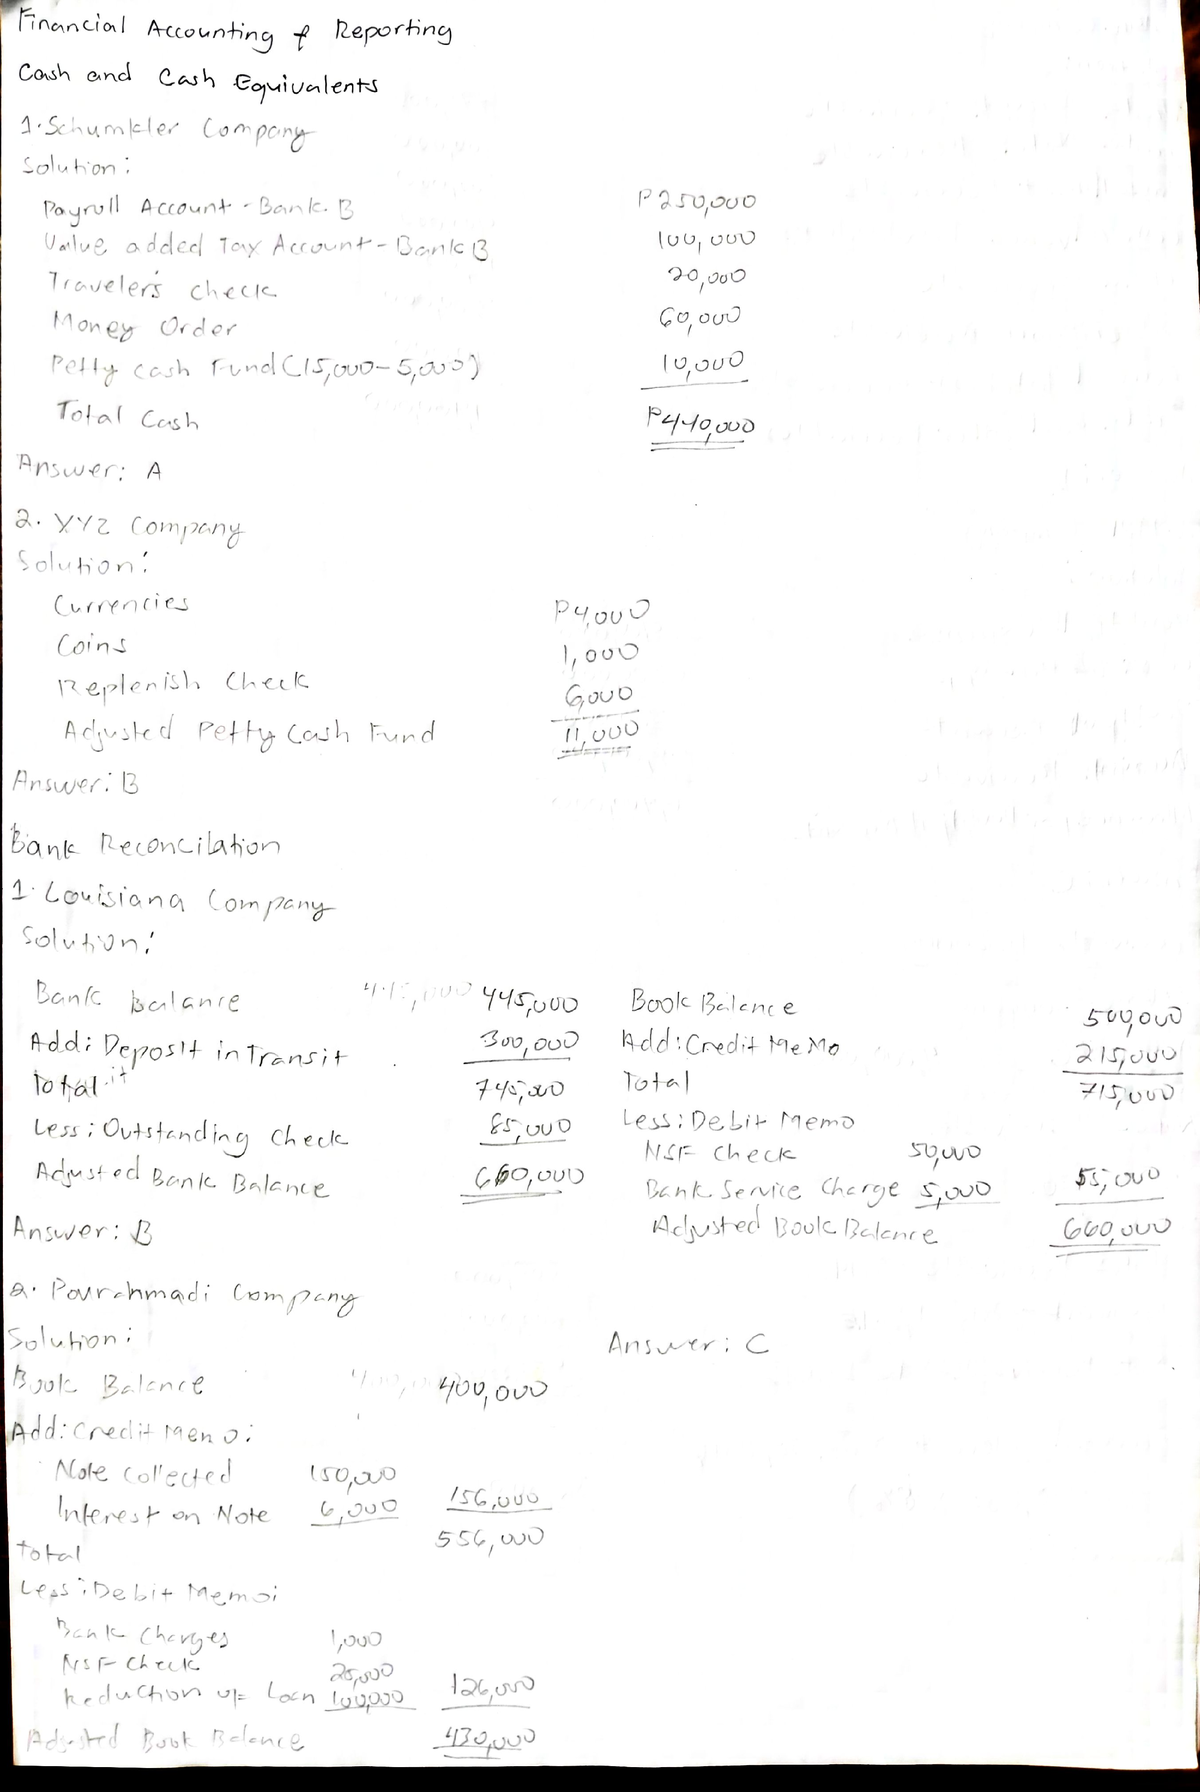 Financial Accounting & Reporting
Cash and Cash Equivalents
1. Schumkler Company
Solution:
Payroll Account - Bank B P250,000
Value added Tax Account - Bank B 100,000
Traveler's check 20,000
Money Order 60,000
Petty cash Fund (15,000 - 5,000) 10,000
Total Cash P440,000
Answer: A
2. XYZ Company
Solution:
Currencies P4,000
Coins 1,000
Replenish Check 6,000
Adjusted Petty Cash Fund 11,000
Answer: B
Bank Reconcilation
1. Louisiana Company
Solution:
Bank Balance 445,000
Add: Deposit in Transit 300,000
Total 745,000
Less: Outstanding Check 85,000
Adjusted Bank Balance 660,000
Answer: B
Book Balance 500,000
Add: Credit Memo 215,000
Total 715,000
Less: Debit Memo
NSF Check 50,000
Bank Service Charge 5,000 55,000
Adjusted Book Balance 660,000
2. Pourahmadi Company
Solution:
Answer: C
Book Balance 400,000
Add: Credit Memo:
Note collected 150,000
Interest on Note 6,000 156,000
Total 556,000
Less: Debit Memo:
Bank Charges 1,000
NSF Check 25,000
Reduction of Loan 100,000 126,000
Adjusted Book Balance 430,000